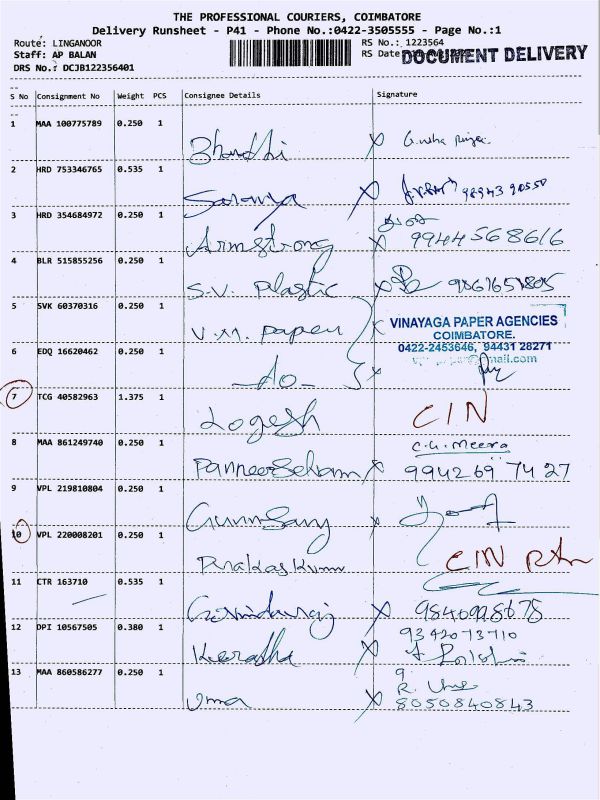 THE PROFESSIONAL COURIERS, COIMBATORE
Delivery Runsheet - P41 - Phone No.:0422-3505555 - Page No.:1
Route: LINGANOOR
Staff: AP BALAN
DRS No.: DCJB122356401
RS No.: 1223564
RS Date
DOCUMENT DELIVERY
S No Consignment No Weight PCS Consignee Details Signature
1 MAA 100775789 0.250 1
Bharathi X
2 HRD 753346765 0.535 1
Saranya X 98943 90550
3 HRD 354684972 0.250 1
Armstrong X 9944568616
4 BLR 515855256 0.250 1
S.V. Plastic X
5 SVK 60370316 0.250 1
V.M. Paper
VINAYAGA PAPER AGENCIES
COIMBATORE.
0422-2453646, 94431 28271
mail.com
6 EDQ 16620462 0.250 1
-do- X
7 TCG 40582963 1.375 1
Logesh CIN
8 MAA 861249740 0.250 1
C.G. Meera
Panneerselvam X 9942697427
9 VPL 219810804 0.250 1
X
10 VPL 220008201 0.250 1
Prakaskumar CIN
11 CTR 163710 0.535 1
Govindaraj X 9840928678
12 DPI 10567505 0.380 1
9342073710
Keeratha X
13 MAA 860586277 0.250 1
R. Uma
Uma X 8050840843